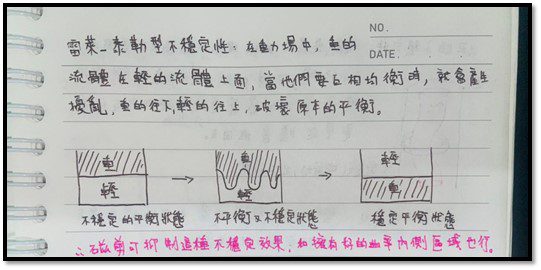 NO.
雷萊-泰勒型不穩定性：在重力場中，重的
DATE.
流體在輕的流體上面，當他們要互相均衡時，就會產生
擾亂，重的往下，輕的往上，破壞原本的平衡。
重 → 重 → 輕
輕 輕 重
不穩定的平衡狀態 不平衡又不穩定狀態 穩定平衡狀態
∴磁剪可抑制這種不穩定效果，如擁有好的曲率內側區域也行。